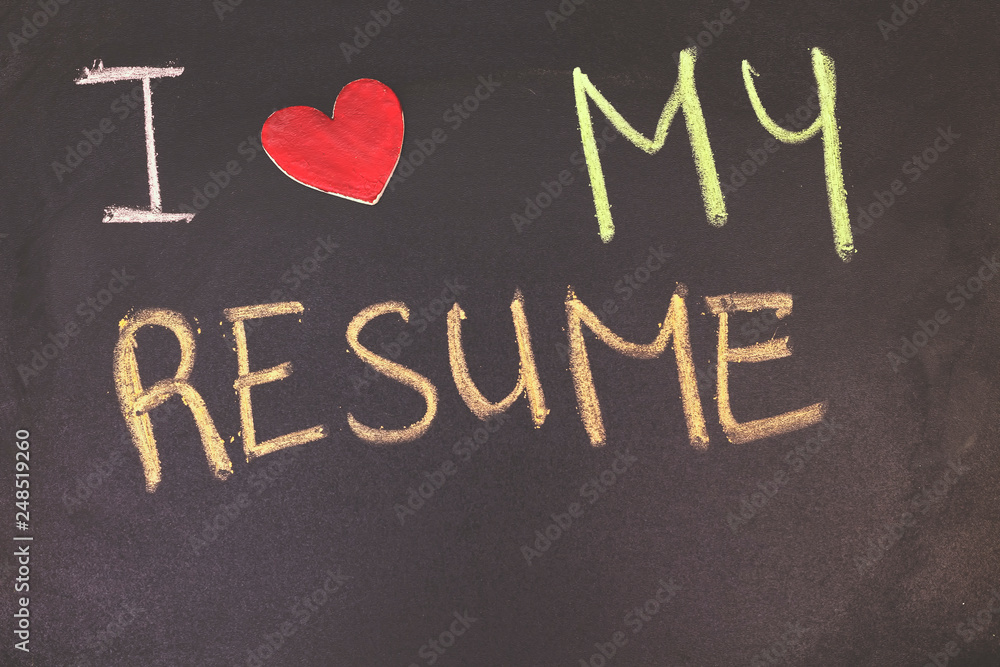 I MY
RESUME
Adobe Stock | #248519260